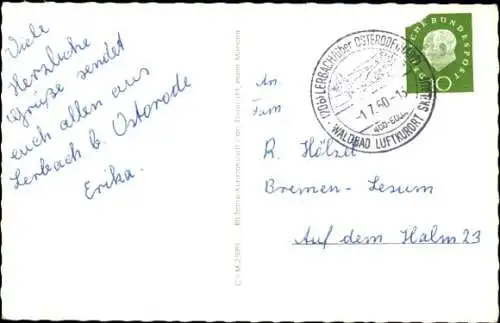 Viele
Herzliche
Grüße sendet
euch allen aus
Lerbach b. Osterode
Erika.
An
Fam
R. Hölzel
Bremen-Lesum
Auf dem Halm 23
DEUTSCHE BUNDESPOST
10
LERBACH über OSTERODE
-1.7.60-15
400-600
WALDBAD LUFTKURORT